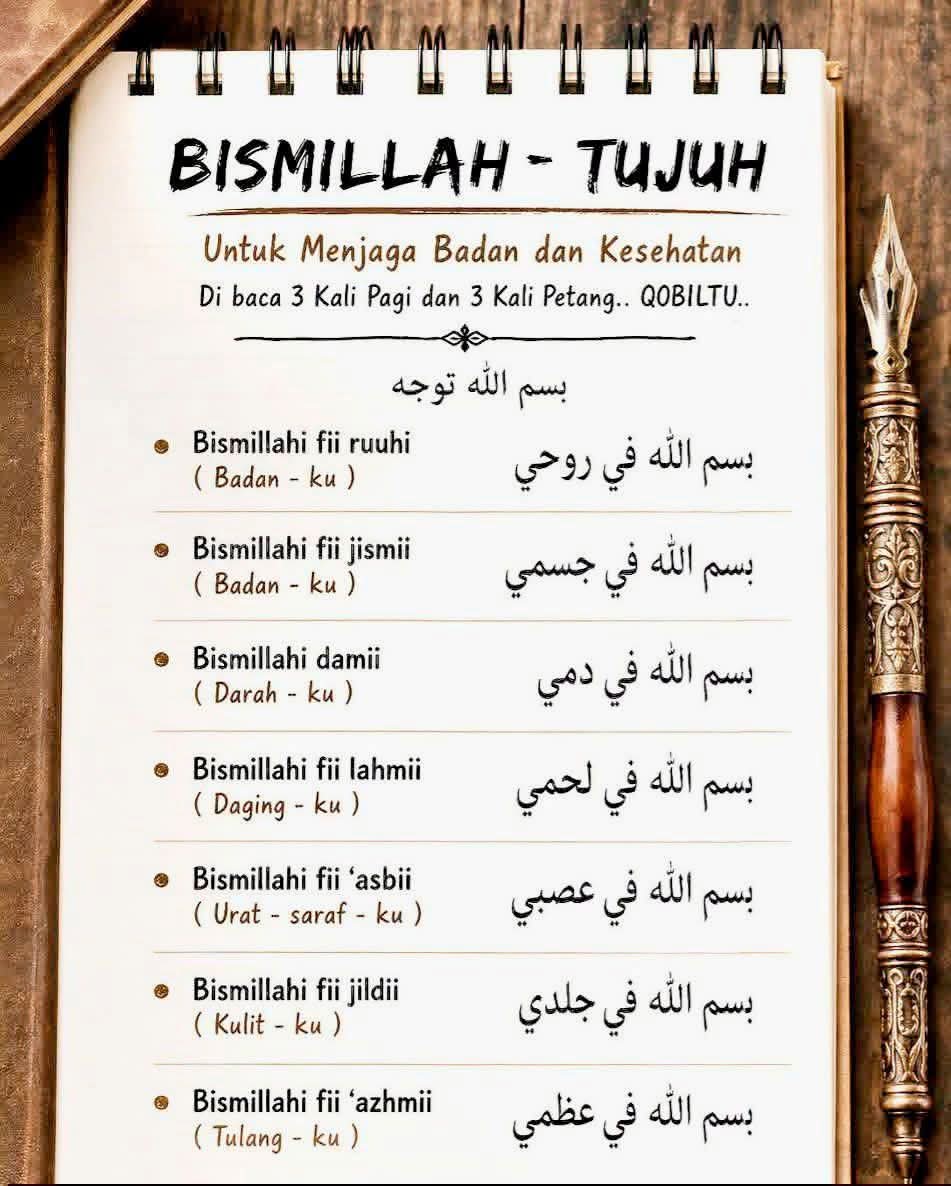 BISMILLAH - TUJUH
Untuk Menjaga Badan dan Kesehatan
Di baca 3 Kali Pagi dan 3 Kali Petang.. QOBILTU..
بسم الله توجه
Bismillahi fii ruuhi
بسم الله في روحي
( Badan - ku )
Bismillahi fii jismii
بسم الله في جسمي
( Badan - ku )
Bismillahi damii
بسم الله في دمي
( Darah - ku )
Bismillahi fii lahmii
بسم الله في لحمي
( Daging - ku )
Bismillahi fii ‘asbii
بسم الله في عصبي
( Urat - saraf - ku )
Bismillahi fii jildii
بسم الله في جلدي
( Kulit - ku )
Bismillahi fii ‘azhmii
بسم الله في عظمي
( Tulang - ku )